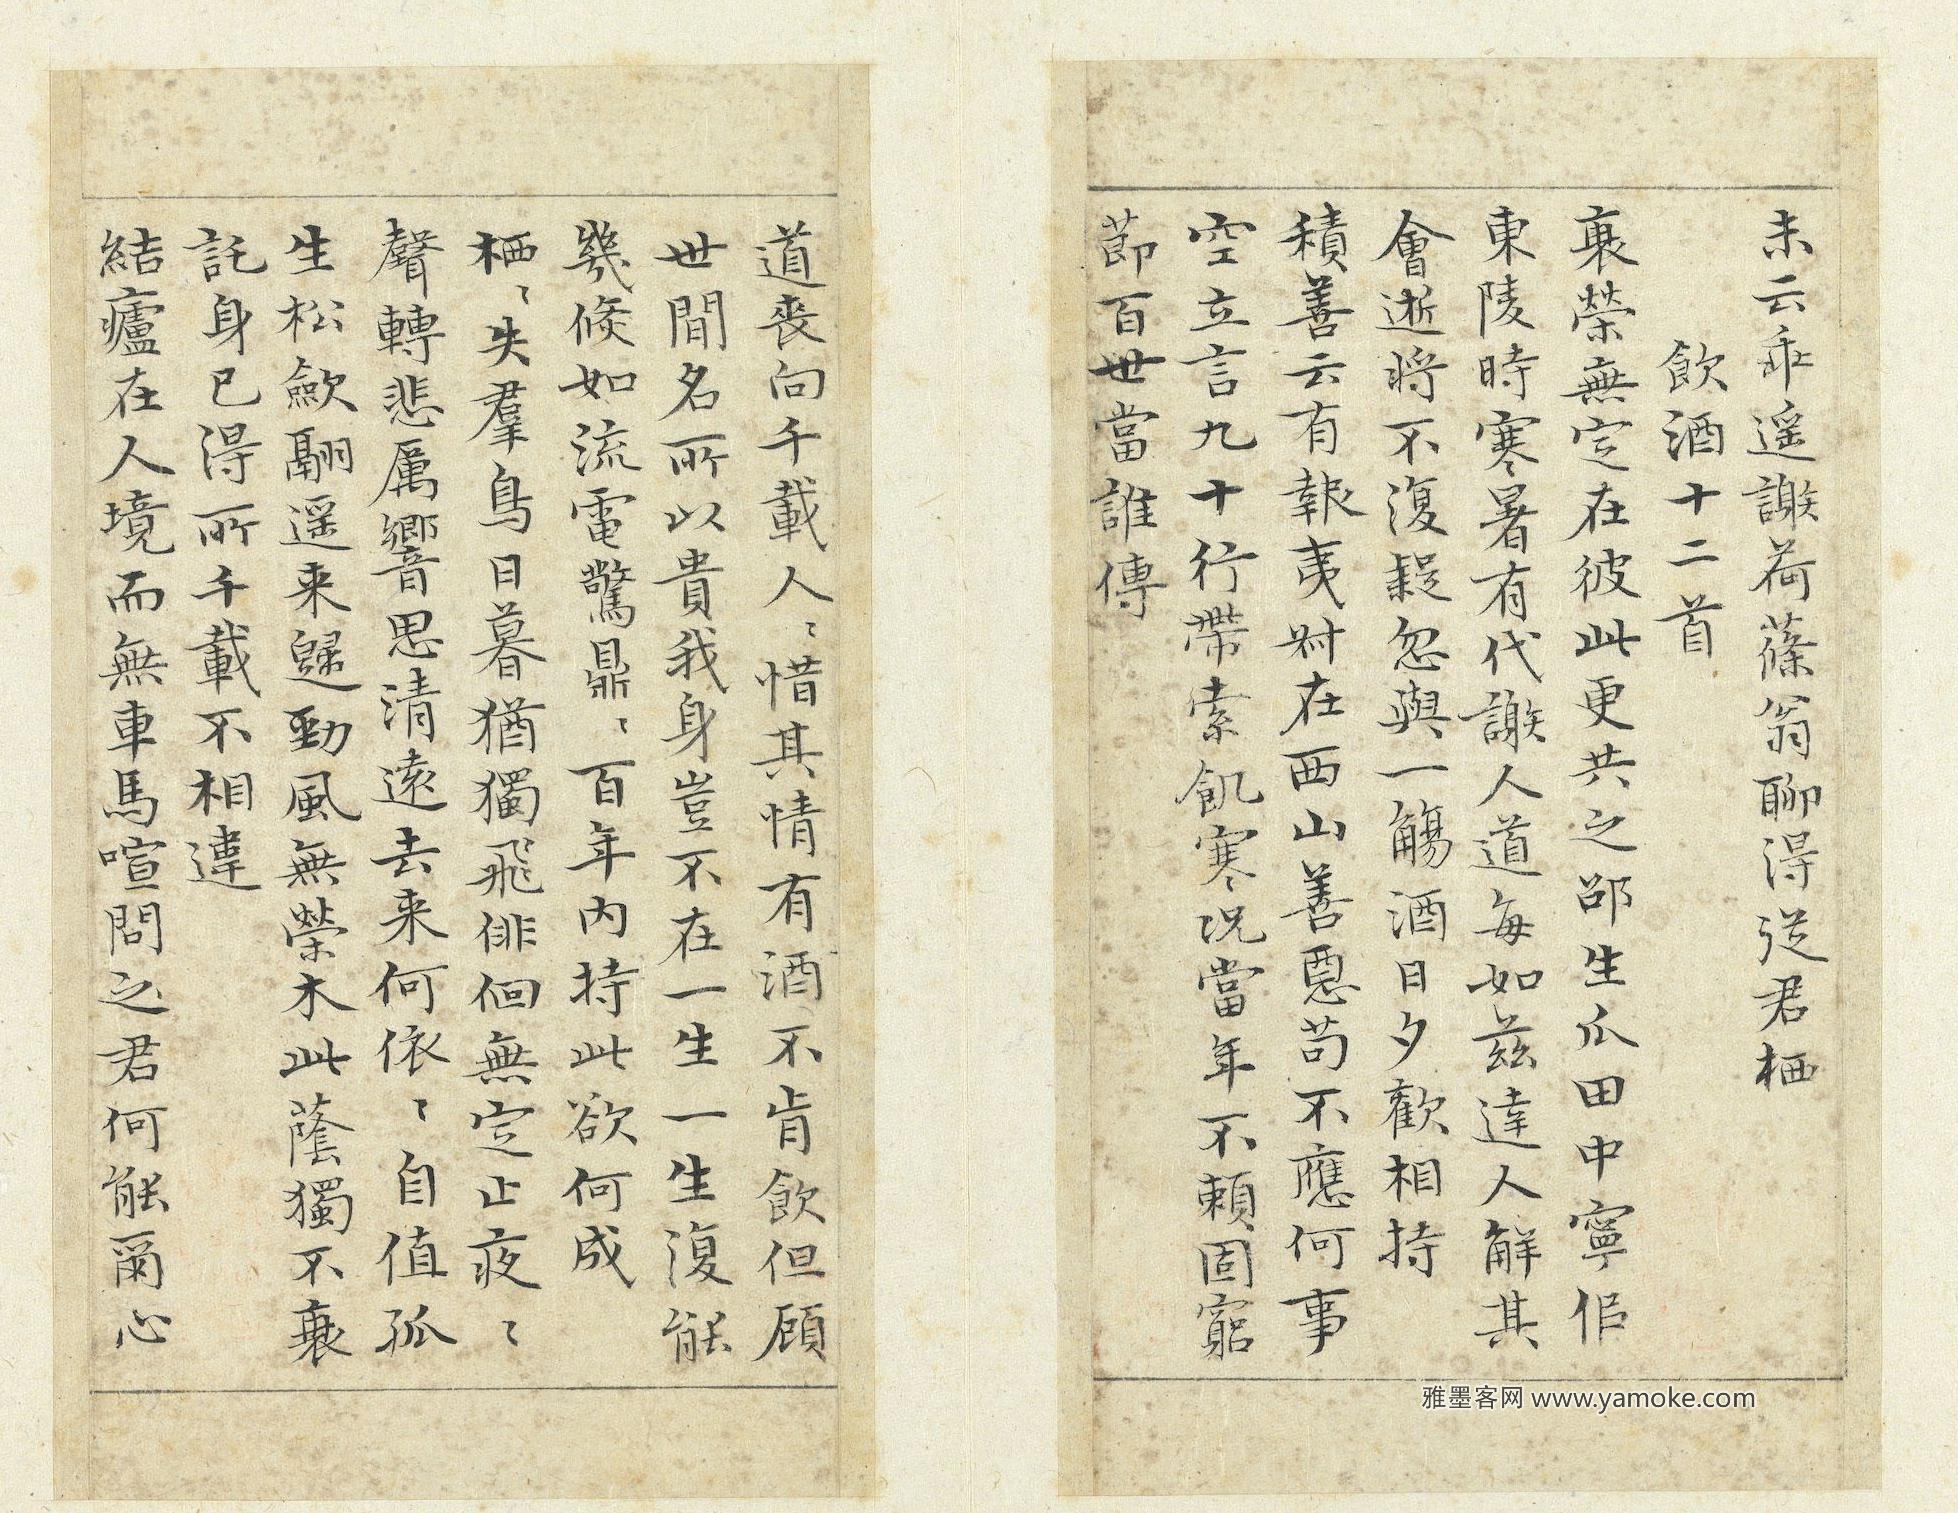 未云乖遥謝荷蓧翁聊得從君栖
飲酒十二首
衰榮無定在彼此更共之邵生瓜田中寧佀
東陵時寒暑有代謝人道每如兹達人解其
會逝將不復疑忽與一觴酒日夕歡相持
積善云有報夷叔在西山善惡苟不應何事
空立言九十行帶索飢寒況當年不賴固窮
節百世當誰傳
道喪向千載人〻惜其情有酒不肯飲但顧
世間名所以貴我身豈不在一生一生復能
幾倏如流電驚鼎〻百年内持此欲何成
栖〻失羣鳥日暮猶獨飛徘徊無定止夜〻
聲轉悲厲響思清遠去来何依〻自值孤
生松歛翮遥来歸勁風無榮木此蔭獨不衰
託身已得所千載不相違
結廬在人境而無車馬喧問之君何能爾心
雅墨客网 www.yamoke.com